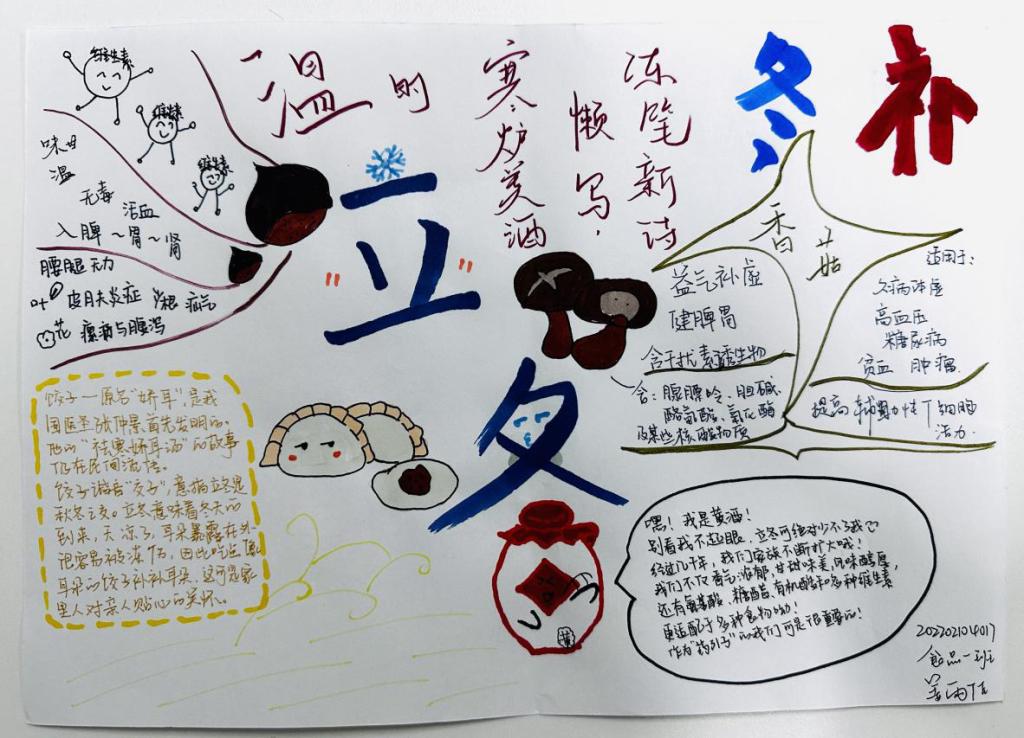 冬补
立冬
冻笔新诗
懒写,
寒炉美酒
时
温
维生素
维生素
维生素
味甘
温
无毒
活血
入脾~胃~肾
腰腿无力
叶
皮肤炎症
根 疝气
花
瘰疬与腹泻
香菇
益气补虚
健脾胃
含干扰素诱生物
含:腺膘呤、胆碱、
酪氨酸、氧化酶
及某些核酸物质
适用于:
久病体虚
高血压
糖尿病
贫血 肿瘤
提高辅助性T细胞
活力.
饺子一原名“娇耳”,是我
国医圣张仲景首先发明的。
他的“祛寒娇耳汤”的故事
仍在民间流传。
饺子谐音“交子”,意指立冬是
秋冬之交。立冬意味着冬天的
到来,天凉了,耳朵暴露在外
很容易被冻伤,因此吃点
耳朵的饺子补补耳朵,这可是家
里人对亲人贴心的关怀。
黄
嘿!我是黄酒!
别看我不起眼,立冬可绝对少不了我
经过几千年,我们家族不断扩大哦!
我们不仅香气浓郁,甘甜味美,风味醇厚,
还有氨基酸、糖、醋、有机酸和多种维生素
更适配于多种食物哟!
作为“药引子”的我们可是很重要的!
202202104017
食品一班